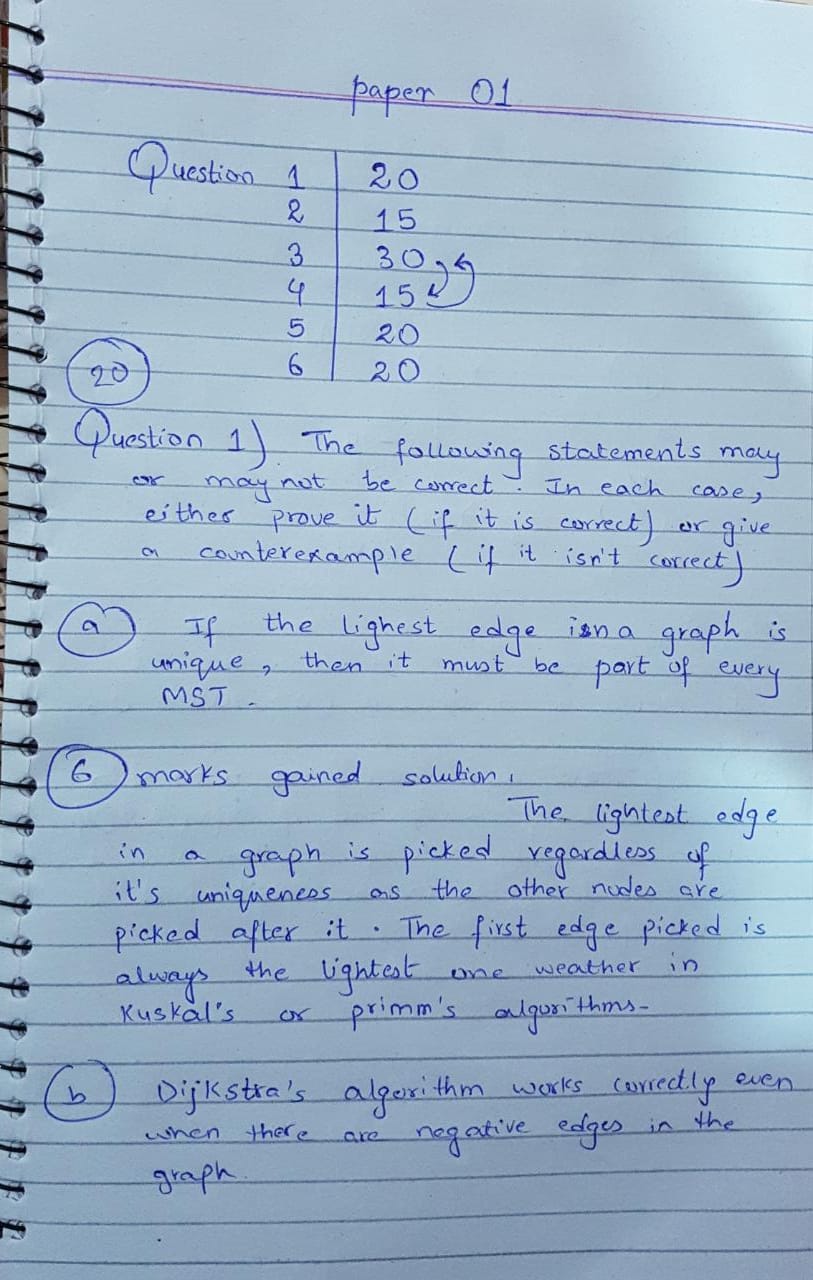 paper 01
Question 1 20
2 15
3 30
4 15
5 20
6 20
20
Question 1) The following statements may
or may not be correct. In each case,
either prove it (if it is correct) or give
a counterexample (if it isn't correct)
a If the lighest edge in a graph is
unique, then it must be part of every
MST.
6 marks gained solution,
The lightest edge
in a graph is picked regardless of
it's uniqueness as the other nodes are
picked after it. The first edge picked is
always the lightest one weather in
Kuskal's or primm's algorithms-
b Dijkstra's algorithm works correctly even
when there are negative edges in the
graph.